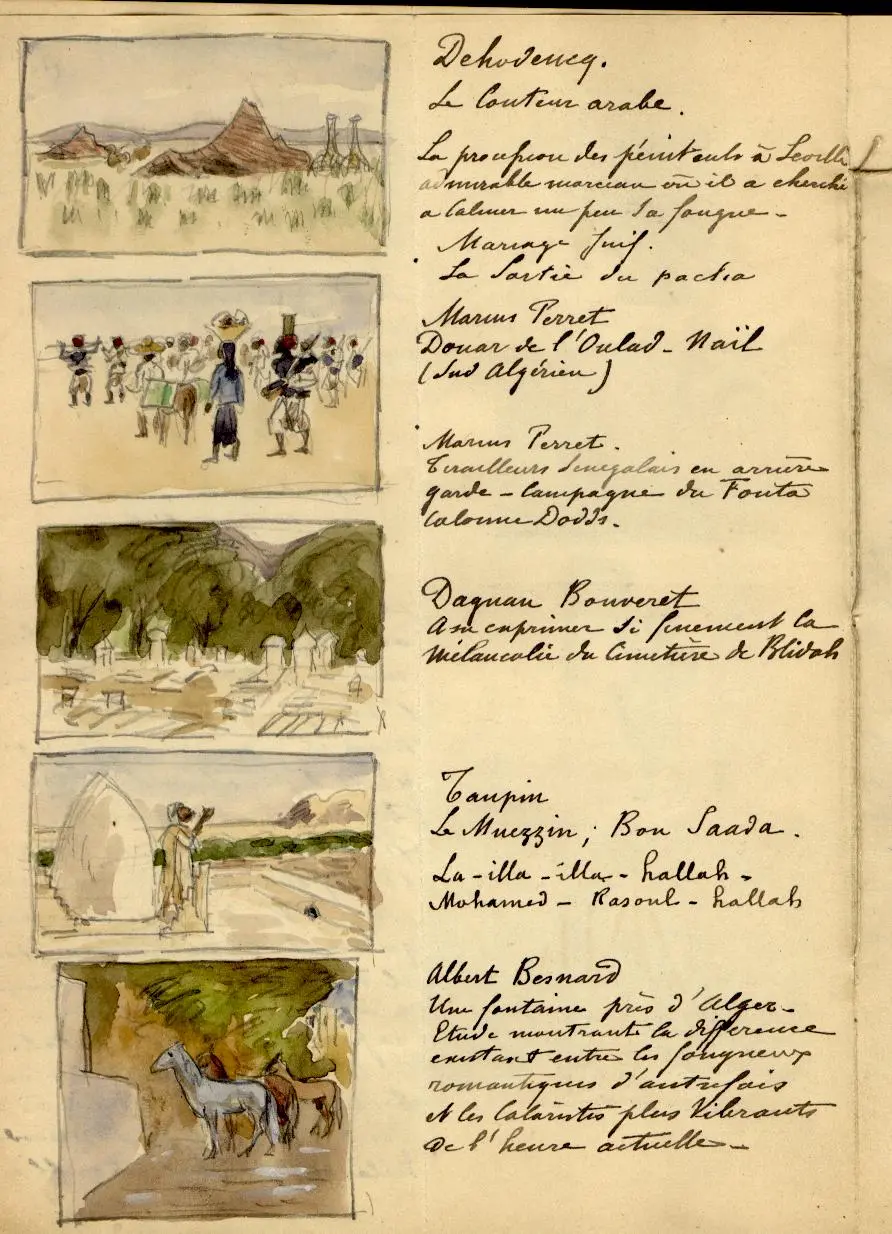 Dehodencq.
Le Conteur arabe.
La procession des pénitents à Séville
admirable morceau où il a cherché
a calmer un peu sa fougue -
Mariage Juif.
La Sortie du pacha
Marius Perret
Douar de l'Oulad - Naïl
(Sud Algérien)
Marius Perret.
Tirailleurs Sénégalais en arrière
garde - Campagne du Fouta
Colonne Dodds.
Dagnan Bouveret
A su exprimer si finement la
Mélancolie du Cimetière de Blidah
Taupin
Le Muezzin ; Bou Saada.
La - illa - illa - hallah -
Mohamed - Rasoul - hallah
Albert Besnard
Une fontaine près d'Alger -
Etude montrant la différence
existant entre les fougueux
romantiques d'autrefois
et les Coloristes plus vibrants
de l'heure actuelle -